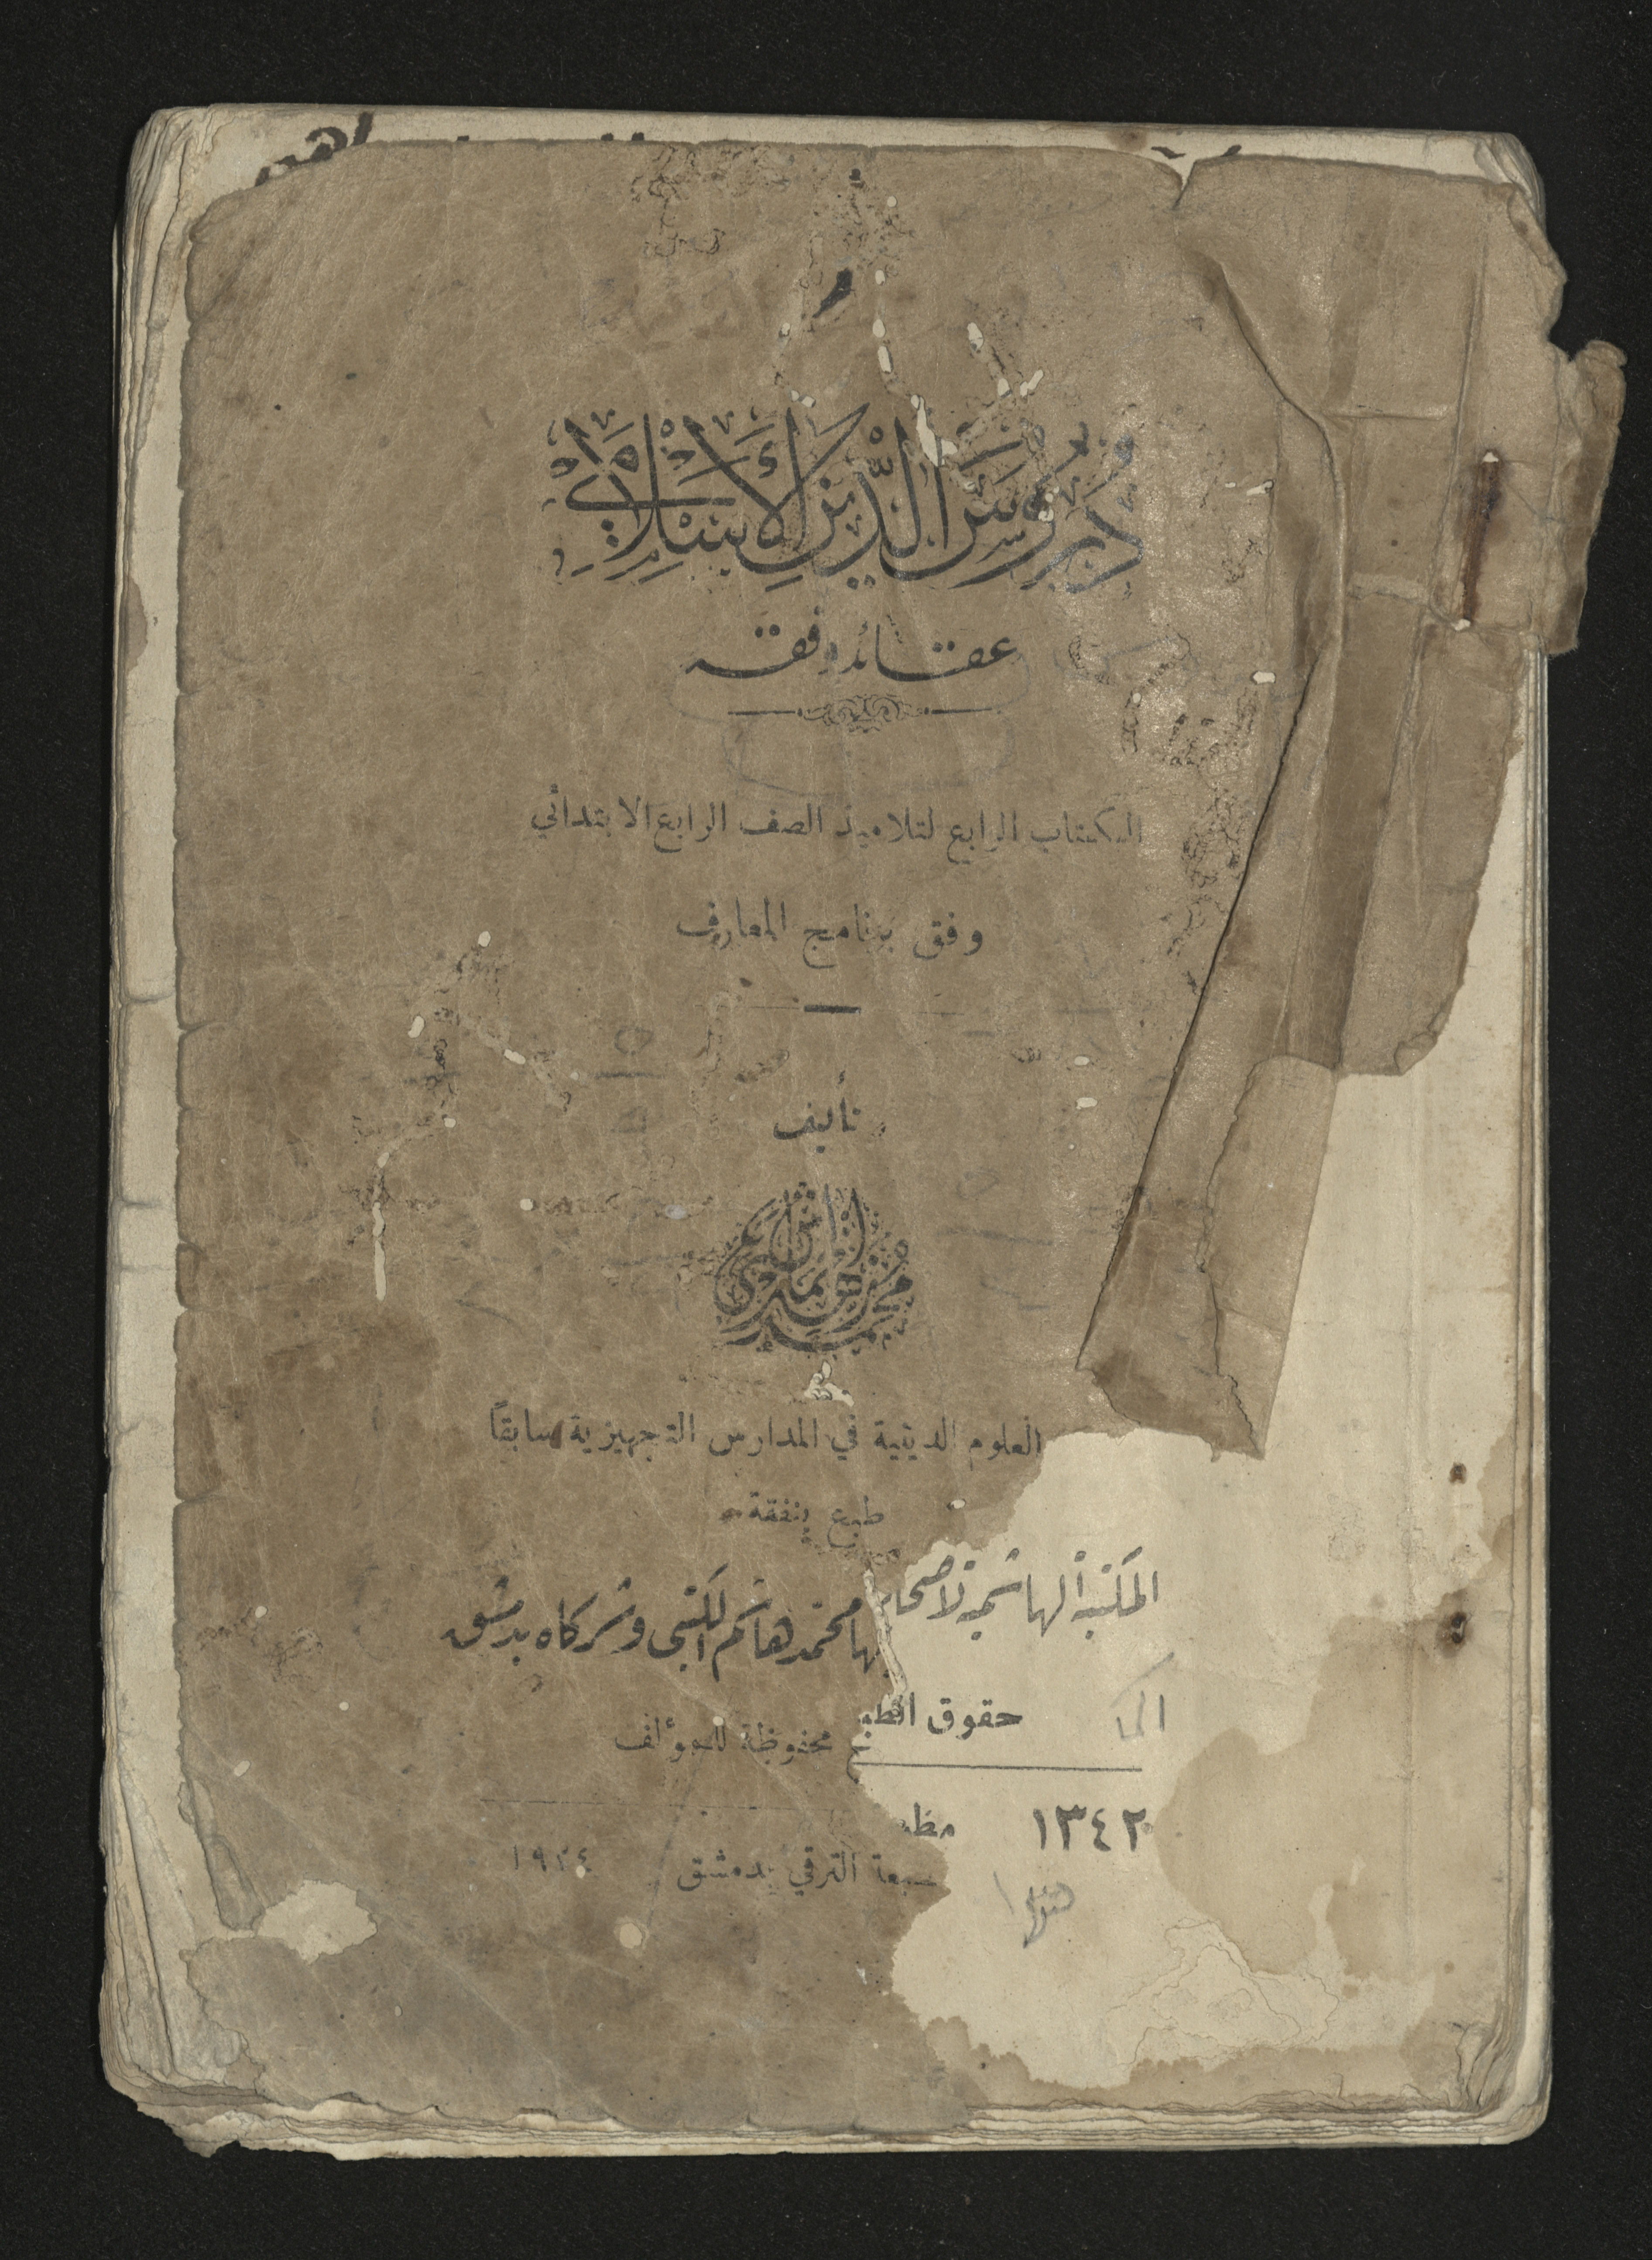 دُرُوسُ الدِّينِ الإِسْلَامِيِّ
عقائد وفقه
الكتاب الرابع لتلاميذ الصف الرابع الابتدائي
وفق برنامج المعارف
تأليف
العلوم الدينية في المدارس التجهيزية سابقاً
طبع بنفقة
المكتبة الهاشمية لأصحابها محمد هاشم الكتبي وشركاه بدمشق
حقوق الطبع محفوظة للمؤلف
١٣٤٢ مطبعة الترقي بدمشق ١٩٢٤